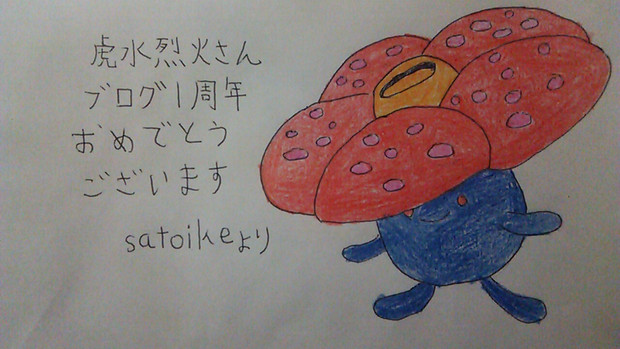 虎水烈火さん
ブログ1周年
おめでとう
ございます
satoikeより